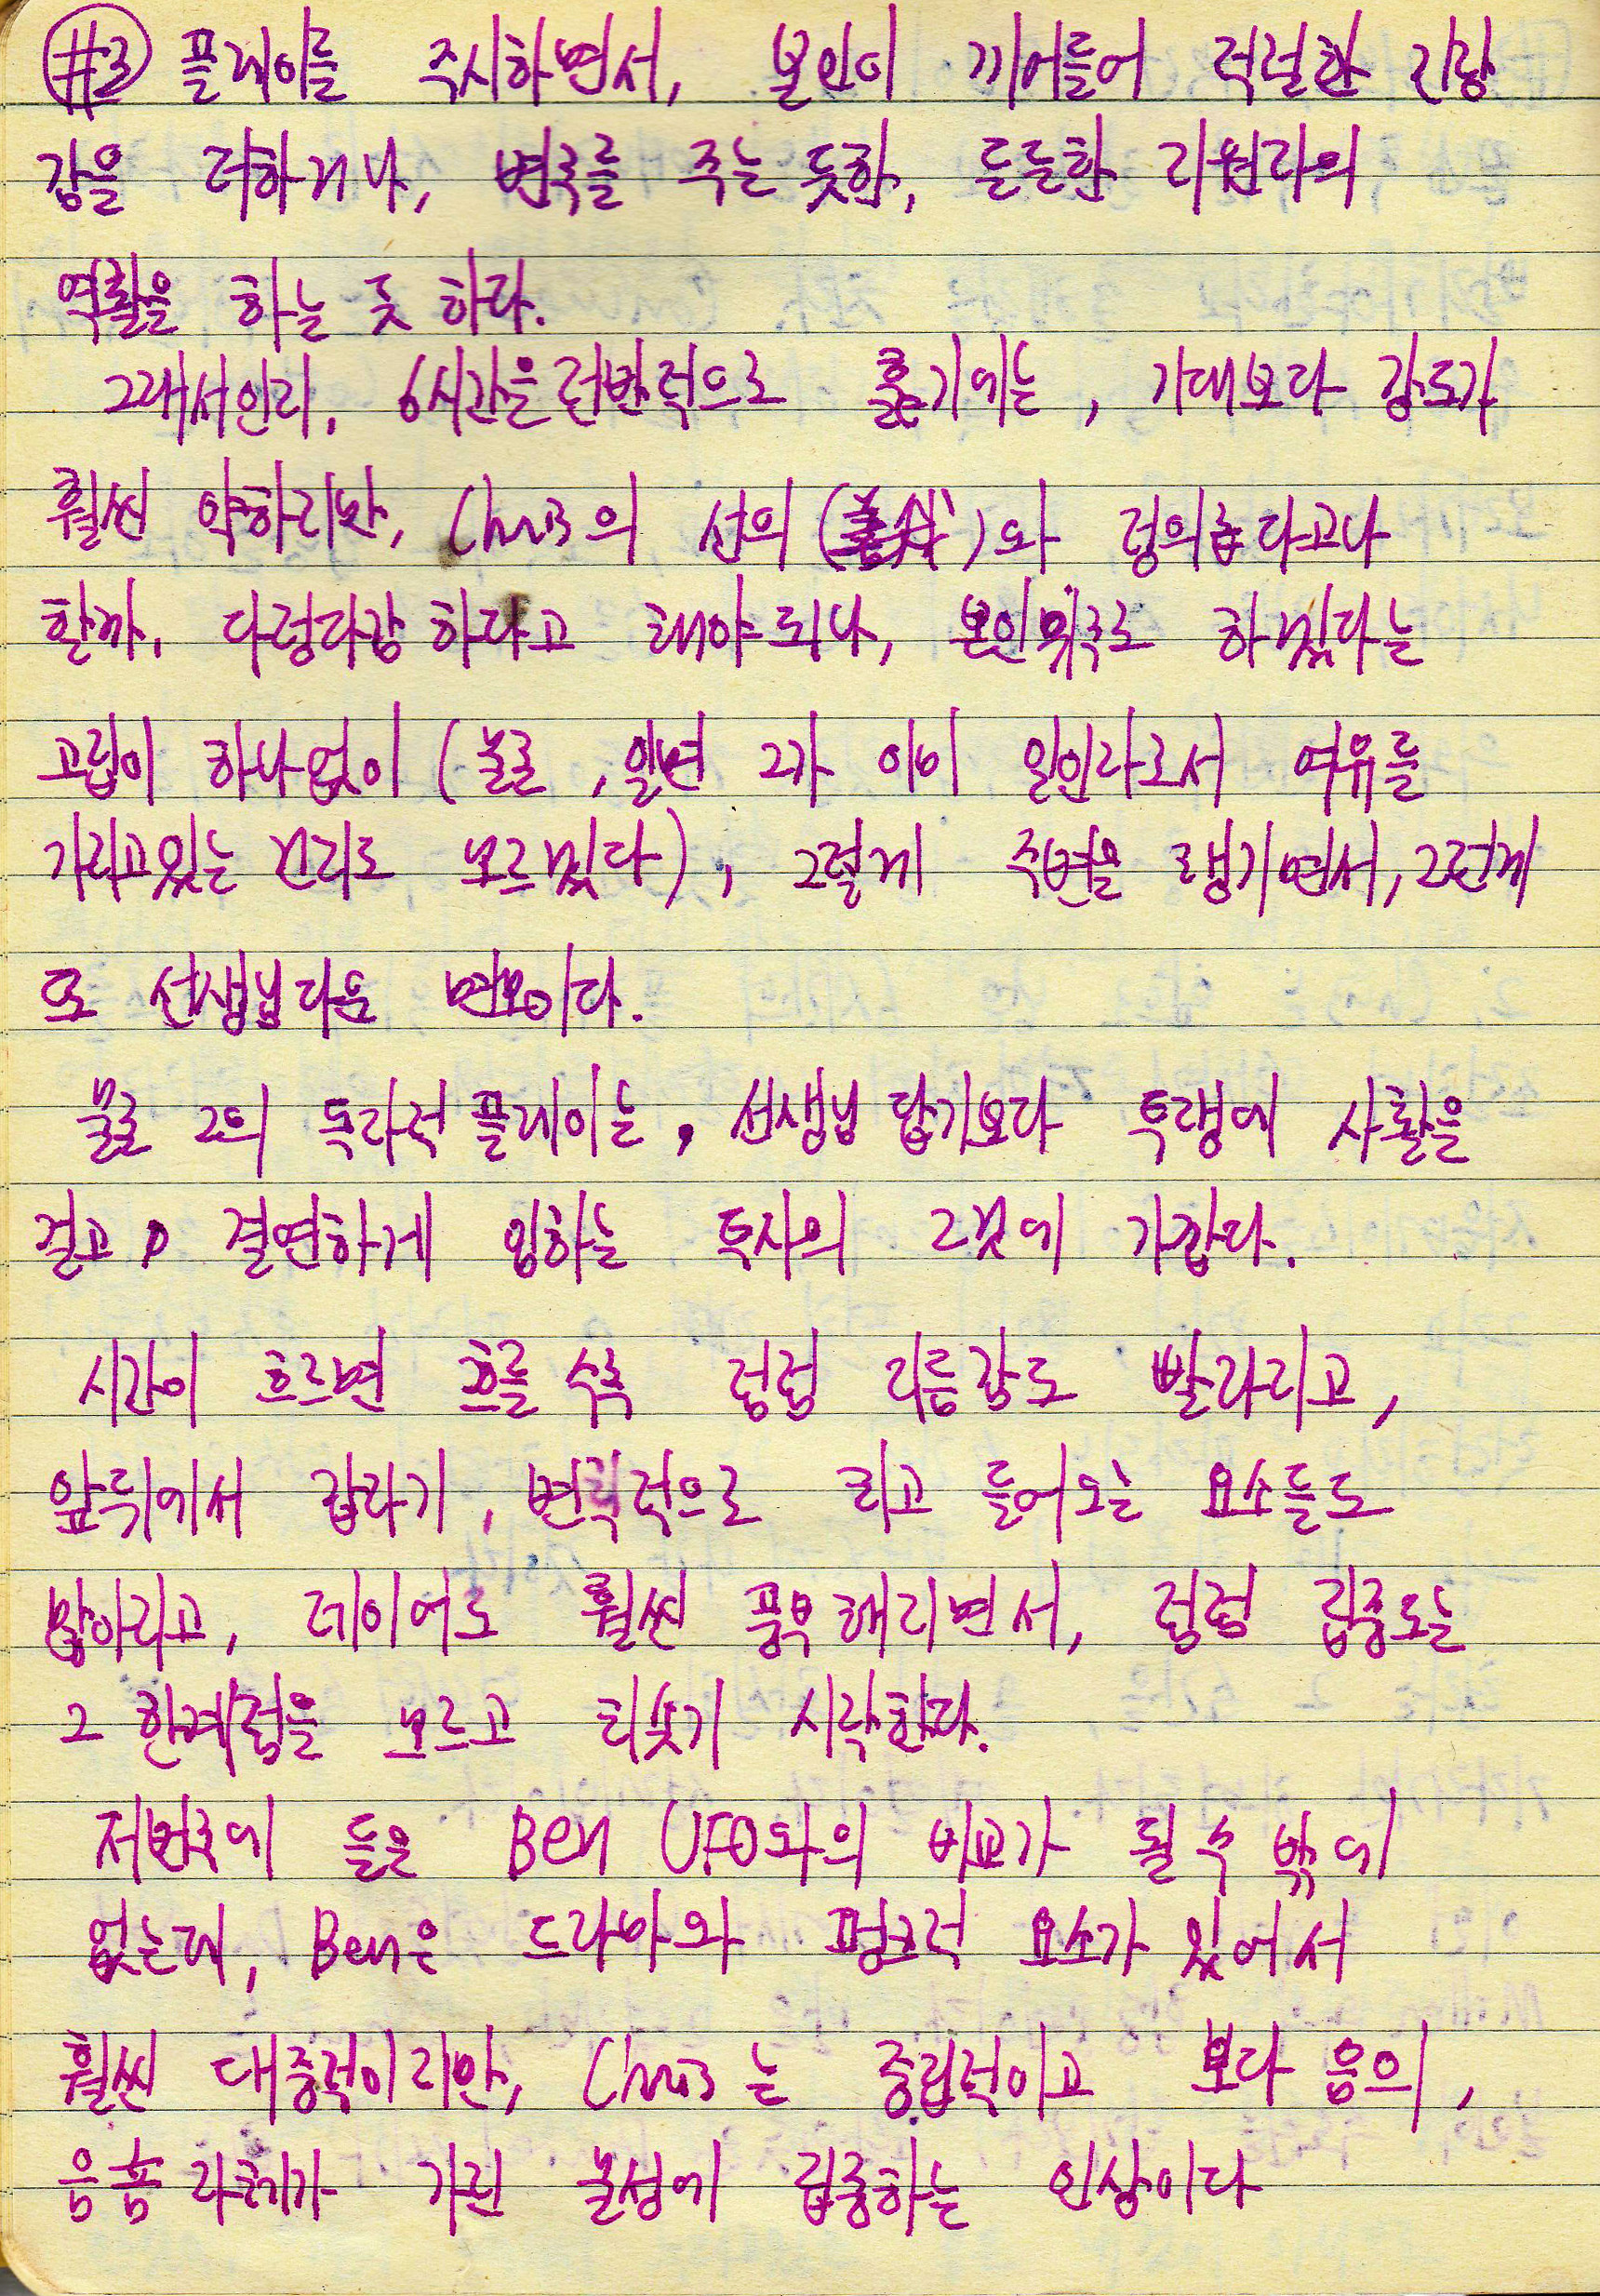 #3 플레이를 주시하면서, 본인이 끼어들어 적절한 긴장
감을 더하거나, 변주를 주는 듯한, 든든한 지원자의
역활을 하는 듯 하다.
그래서인지, 6시간을 전반적으로 훑기에는, 기대보다 강도가
훨씬 약하지만, Chris의 선의(善意)와 정의롭다고나
할까, 다정다감 하다고 해야되나, 본인위주로 하겠다는
고집이 하나없이 (물론, 일면 그가 이미 일인자로서 여유를
가지고있는 건지도 모르겠다), 그렇게 주변을 챙기면서, 그런게
또 선생님다운 면모이다.
물론 그의 독자적 플레이는, 선생님 답기보다 투쟁에 사활을
걸고, 결연하게 임하는 투사의 그것에 가깝다.
시간이 흐르면 흐를 수록 점점 리듬감도 빨라지고,
앞뒤에서 갑자기, 변칙적으로 치고 들어오는 요소들도
많아지고, 레이어도 훨씬 풍부해지면서, 점점 집중도는
그 한계점을 모르고 치솟기 시작한다.
저번주에 들은 Ben UFO와의 비교가 될 수 밖에
없는데, Ben은 드라마와 펑크적 요소가 있어서
훨씬 대중적이지만, Chris는 중립적이고 보다 음의,
음향 자체가 가진 물성에 집중하는 인상이다